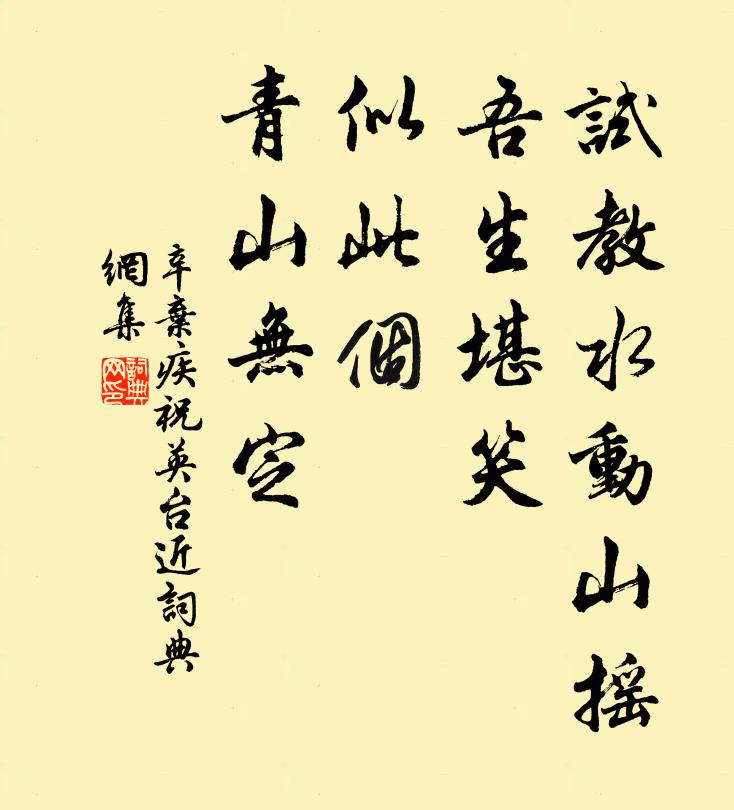 試教水動山摇
吾生堪笑
似此個
青山無定
辛棄疾祝英台近詞典
網集
詞典
网印